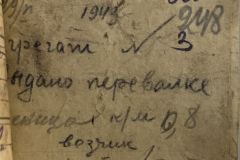 в/п 1943 248
грегат № 3
ыдано перевалке
п/м 0,8
возчик